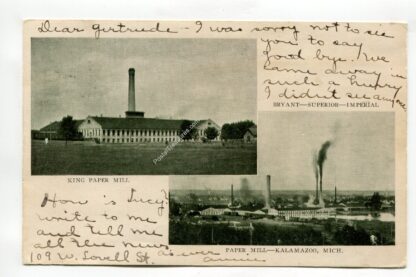 Dear Gertrude - I was sorry not to see
you to say
good bye. We
came away in
such a hurry
I didn't see any one
BRYANT—SUPERIOR—IMPERIAL
KING PAPER MILL
How is Lucy?
write to me
and tell me
all the news
109 W. Lovell St.
as ever
Annie
PAPER MILL—KALAMAZOO, MICH.